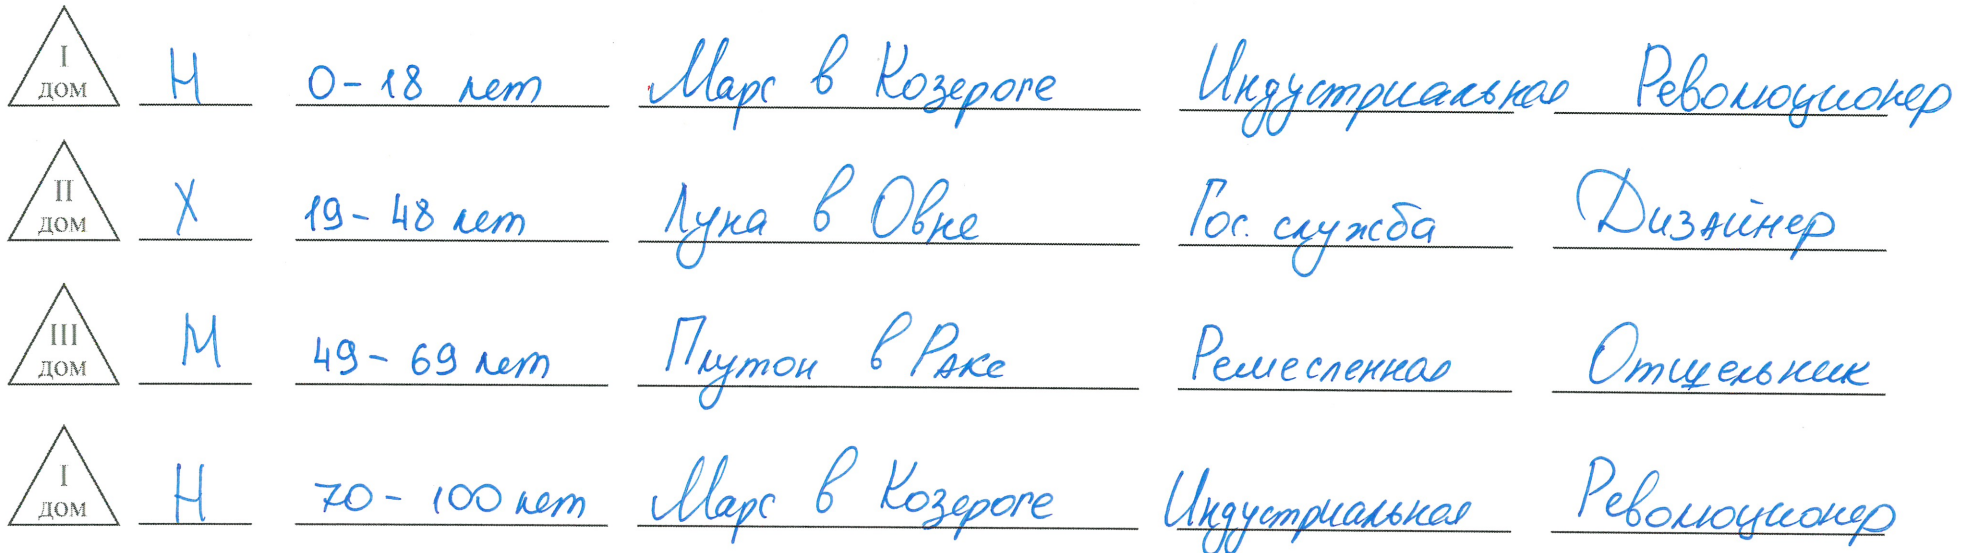 I дом Н 0-18 лет Марс в Козероге Индустриальная Революционер
II дом Х 19-48 лет Луна в Овне Гос. служба Дизайнер
III дом М 49-69 лет Плутон в Раке Ремесленная Отшельник
I дом Н 70-100 лет Марс в Козероге Индустриальная Революционер